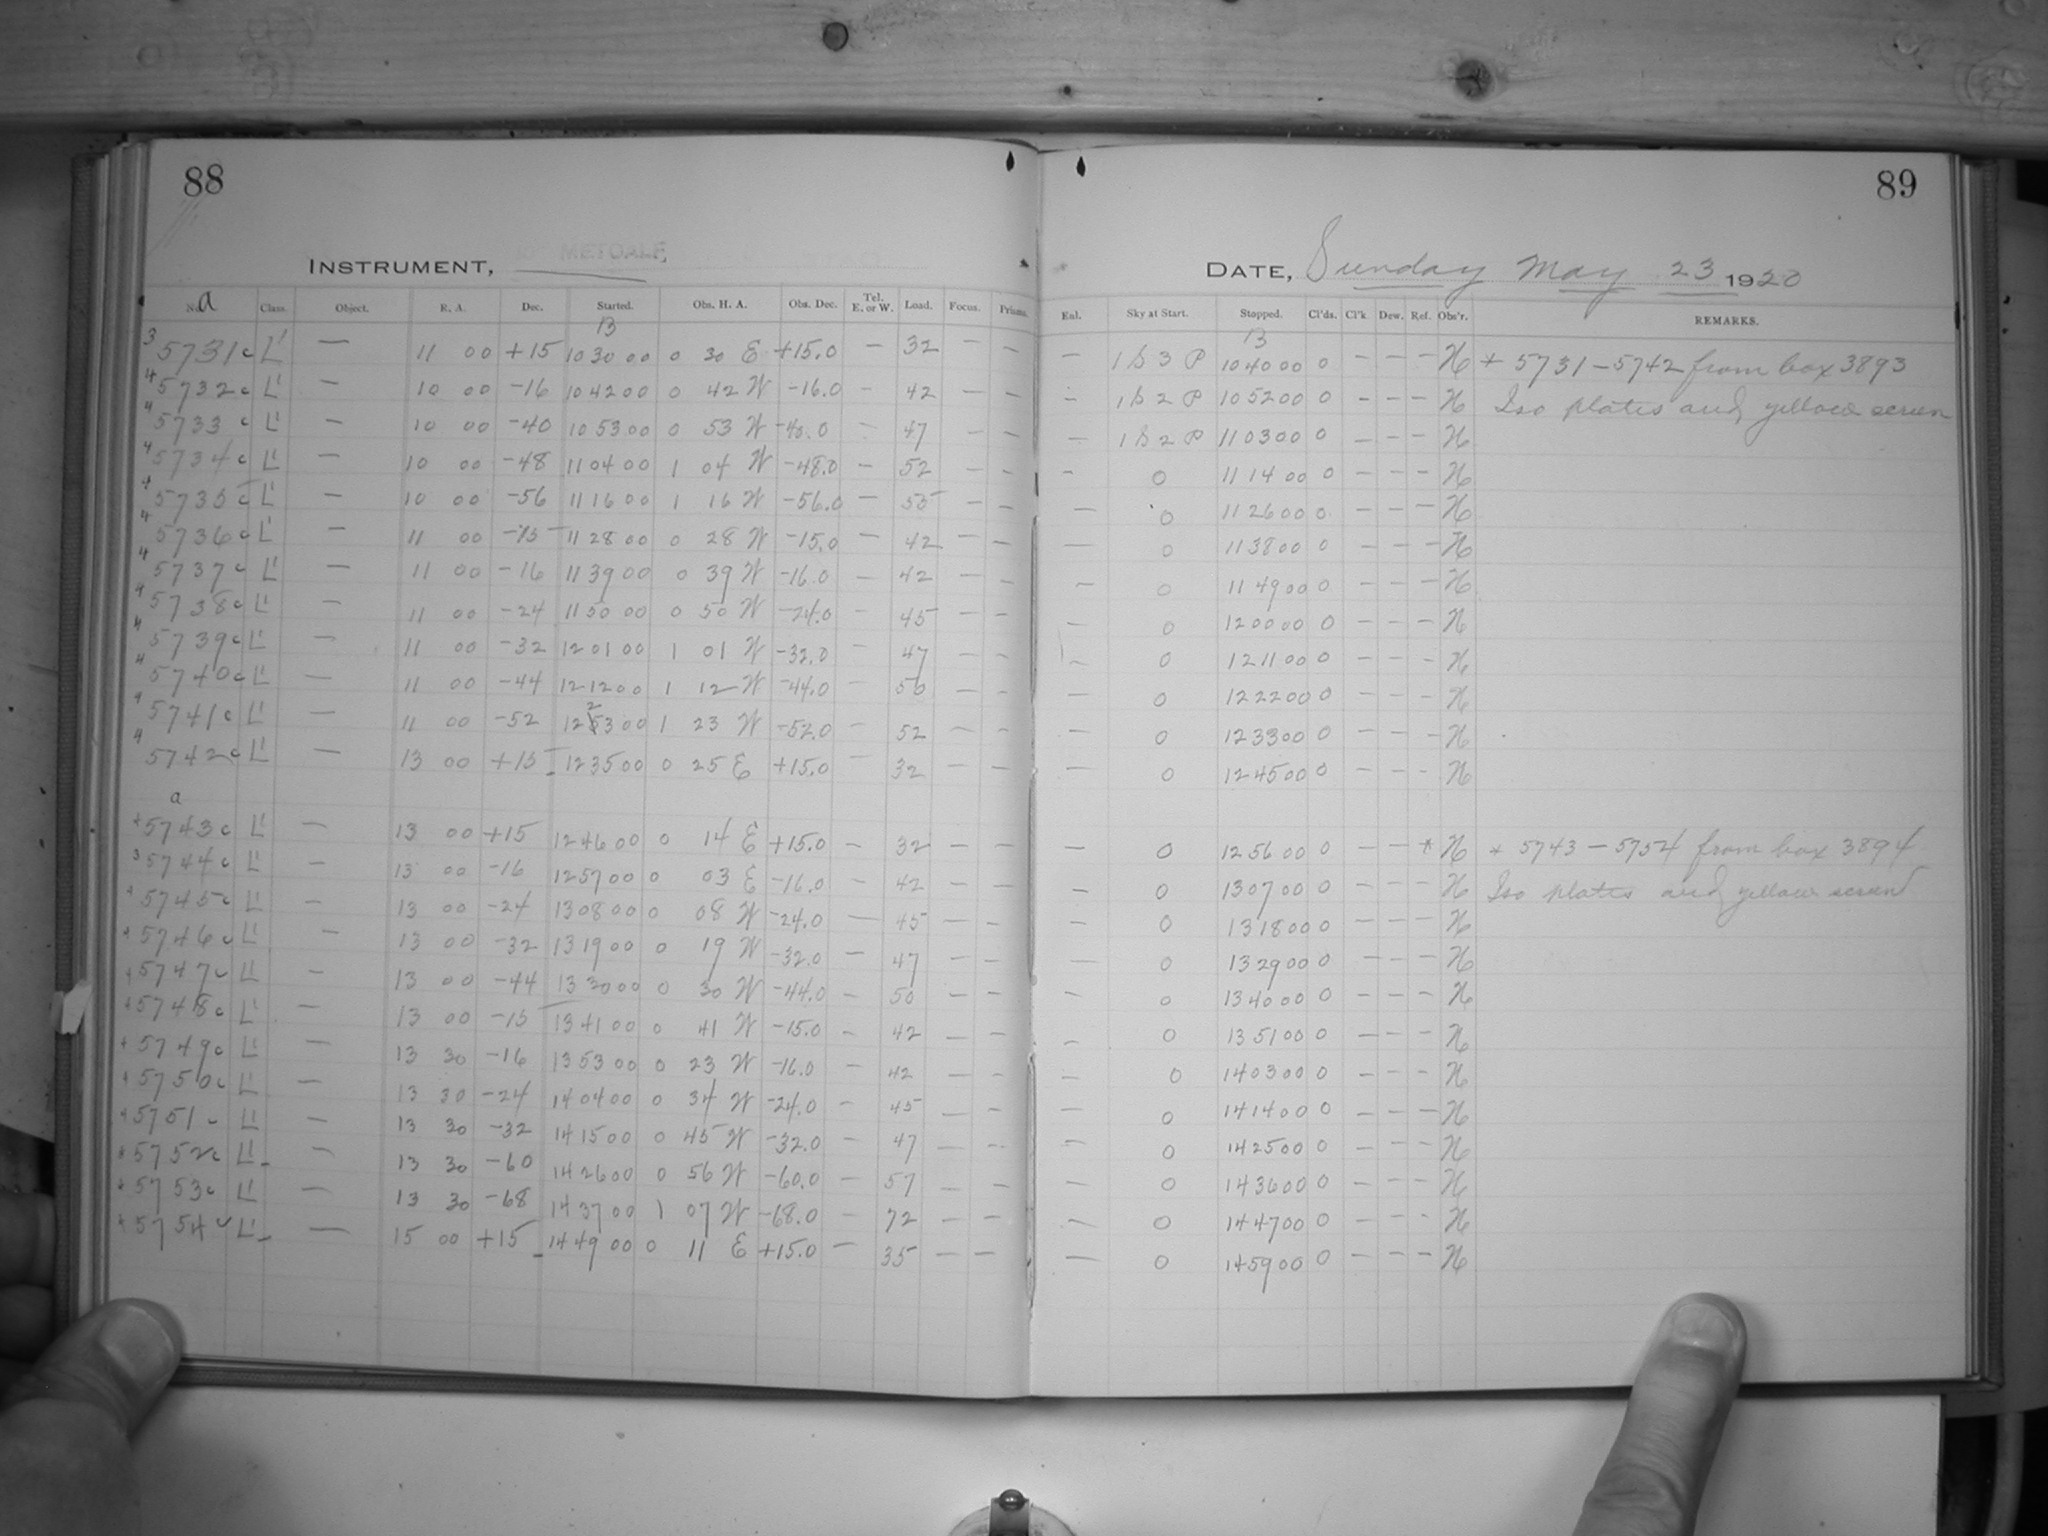 88
89
METCALF
INSTRUMENT,
DATE, Sunday May 23 1920
No. a Class. Object. R. A. Dec. Started. Obs. H. A. Obs. Dec. Tel. E. or W. Load. Focus. Prisms. Enl. Sky at Start. Stopped. Cl'ds. Cl'k Dew. Ref. Obs'r. REMARKS.
13 13
3 5731c L' — 11 00 +15 10 30 00 0 30 E +15.0 — 32 — — — 1 S 3 P 10 40 00 0 — — — H * 5731 – 5742 from box 3893
4 5732c L' — 10 00 -16 10 42 00 0 42 W -16.0 — 42 — — — 1 S 2 P 10 52 00 0 — — — H Iso plates and yellow screen
4 5733c L' — 10 00 -40 10 53 00 0 53 W -40.0 — 47 — — — 1 S 2 P 11 03 00 0 — — — H
4 5734c L' — 10 00 -48 11 04 00 1 04 W -48.0 — 52 — — — 0 11 14 00 0 — — — H
4 5735c L' — 10 00 -56 11 16 00 1 16 W -56.0 — 55 — — — 0 11 26 00 0 — — — H
4 5736c L' — 11 00 -15 11 28 00 0 28 W -15.0 — 42 — — — 0 11 38 00 0 — — — H
4 5737c L' — 11 00 -16 11 39 00 0 39 W -16.0 — 42 — — — 0 11 49 00 0 — — — H
4 5738c L' — 11 00 -24 11 50 00 0 50 W -24.0 — 45 — — — 0 12 00 00 0 — — — H
4 5739c L' — 11 00 -32 12 01 00 1 01 W -32.0 — 47 — — — 0 12 11 00 0 — — — H
4 5740c L' — 11 00 -44 12 12 00 1 12 W -44.0 — 50 — — — 0 12 22 00 0 — — — H
4 5741c L' — 11 00 -52 12 23 00 1 23 W -52.0 — 52 — — — 0 12 33 00 0 — — — H
4 5742c L' — 13 00 +15 12 35 00 0 25 E +15.0 — 32 — — — 0 12 45 00 0 — — — H
a
4 5743c L' — 13 00 +15 12 46 00 0 14 E +15.0 — 32 — — — 0 12 56 00 0 — — * H * 5743 – 5754 from box 3894
3 5744c L' — 13 00 -16 12 57 00 0 03 E -16.0 — 42 — — — 0 13 07 00 0 — — — H Iso plates and yellow screen
4 5745c L' — 13 00 -24 13 08 00 0 08 W -24.0 — 45 — — — 0 13 18 00 0 — — — H
4 5746c L' — 13 00 -32 13 19 00 0 19 W -32.0 — 47 — — — 0 13 29 00 0 — — — H
4 5747c L' — 13 00 -44 13 30 00 0 30 W -44.0 — 50 — — — 0 13 40 00 0 — — — H
4 5748c L' — 13 00 -15 13 41 00 0 41 W -15.0 — 42 — — — 0 13 51 00 0 — — — H
4 5749c L' — 13 30 -16 13 53 00 0 23 W -16.0 — 42 — — — 0 14 03 00 0 — — — H
4 5750c L' — 13 30 -24 14 04 00 0 34 W -24.0 — 45 — — — 0 14 14 00 0 — — — H
4 5751c L' — 13 30 -32 14 15 00 0 45 W -32.0 — 47 — — — 0 14 25 00 0 — — — H
4 5752c L' — 13 30 -60 14 26 00 0 56 W -60.0 — 57 — — — 0 14 36 00 0 — — — H
4 5753c L' — 13 30 -68 14 37 00 1 07 W -68.0 — 72 — — — 0 14 47 00 0 — — — H
4 5754c L' — 15 00 +15 14 49 00 0 11 E +15.0 — 35 — — — 0 14 59 00 0 — — — H